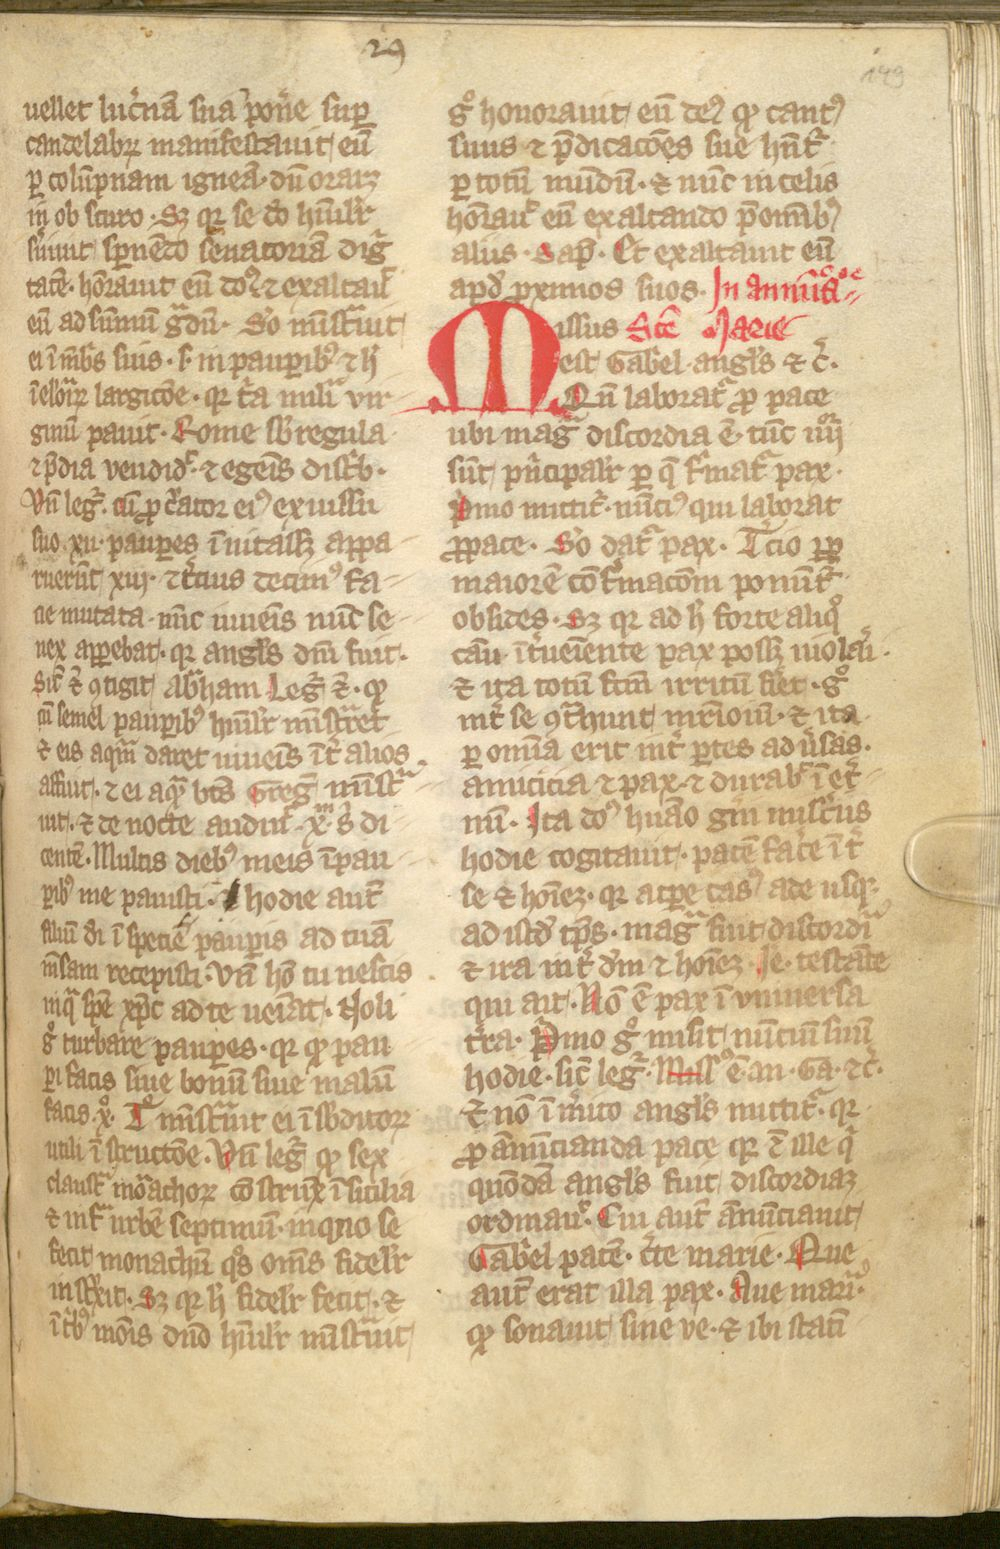 29
149
uellet luc̄nā suā pon̄e sup̱
candelabꝝ manifestauit eū
ꝑ colūpnam igneā. dū oraꝫ
in obscuro. Sꝫ qꝛ se dō hūilr̄
ẜuiuit sp̱nēdo senatoriā dig̾
tatē. hōrauit eū do᷒ ⁊ exaltauᷓ
eū ad sūmū g̾dū. S̾o mīst̾uit
ei ī mēbris suis. s. in paup̱ibꝰ ⁊ h̾
largitōe. qꝛ t̾a milia vir
ginū pauit. Rome sb̄ regula
⁊ p̄dia vendid᷑. ⁊ egenis dist᷑b.
Vn̄ leg᷑. cū p̱c᷑ator eiꝰ ex iussu
suo .xii. paup̱es ī uitass̄ꝫ appa
ruerūt xiii. ⁊ t̄cius decimꝰ fa
cie mutata. nūc iuuenis nūc se
nex apparebat. qꝛ angl̄s dn̄i fuit.
Sic᷑ ⁊ ꝯtigit abr̄ham Leg᷑ ⁊. qꝙ
cū semel paup̱ibꝰ hūilr̄ mīst᷑ret
⁊ eis aquā daret iuuenis īt̄ alios
affuit. ⁊ ei aquā bt̄s Greg᷑ mīst᷑
uit. ⁊ de nocte audiuit. xp̄m s᷑ di
centē. Multis diebꝰ meis ī pau
p̱ibꝰ me pauisti. hodie aut̄
filiū di ī specie paup̱is ad tuā
mēsam recepisti. Vn̄ hō tu nescis
inq̄ spē xp̄c ad te ueiat. Noli
g̊ turbare paup̱es. qꝛ qꝙ pau
p̱i facis siue bonū siue malū
facis. xᵒ. Tᵒ mīst᷑uit ei ī sb̄ditoꝝ
utili īstructōe. Vn̄ leg᷑ qꝙ sex
claust᷑ monachoꝝ cōstruxit ī sicilia
⁊ inf᷑ urbē septimū. in quo se
fecit monachū qᵒs om̄s fidelr̄
inst᷑xit. Sꝫ qꝛ h̾ fidelr̄ fecit. ⁊
dn̄o hūilr̄ mīst᷑uit
g̊ honorauit eū deꝰ qꝙ cantꝰ
suus ⁊ p̄dicacōes sue hn̄t᷑
ꝑ totū mūdū. ⁊ nūc in celis
hōrauᷓ eū exaltando p̄ omībꝰ
aliis. Sap̄. Et exaltauit eū
apd̾ p̱ximos suos. In annūc̄ōe
issus Sc̄e Marie
M
est Gab̄el angl̄s ⁊ c᷑.
Qn̄ laborat᷑ ꝓ pace
ubi mag᷑ discordia ē. tūc iiiiᵒʳ
sūt prīcipalr̄ ꝑ q̄ f᷑mat᷑ pax.
P̄mo mittit᷑. nūciꝰ qui laborat
ꝓ pace. S̾o dat᷑ pax. Tcio ꝓpt᷑
maiorē cōf᷑macōm ponūt᷑
obsides. Sꝫ qꝛ ad h̾ forte aliqᵒ
cāu īt᷑ueiente pax poss̄ꝫ uiolari.
⁊ ita totū fc̄m irritū fiet. g̊
int᷑ se ꝯt᷑hunt mr̄ioiū. ⁊ ita
ꝑ omīa erit int᷑ p̱tes ad ūsas.
amicicia ⁊ pax. ⁊ durabit ī et᷑
nū. Ita doꝰ huāo gn̄i misc᷑tus
hodie cogitauit. pacē fac᷑e īt᷑
se ⁊ hoīeꝫ. qꝛ a tp̱e casꝰ ade usqꝫ
ad istd̾ tp̄s. mag᷑ fuit discordia
⁊ ira int᷑ dm̄ ⁊ hoīeꝫ. Se. testāte
qui ait. Nō ē pax ī vniuersa
t᷑ra. P̄mo g̊ misit nūciū suū
hodie. sic̄ leg᷑. Missꝰ ē an. Ga. ⁊c᷑.
⁊ nō ī m᷑ito angl̄s mittit᷑. qꝛ
ꝓ ānūcianda pace qꝛ ⁊ ille q̄
quōdā angl̄s fuit discordiaꝫ
ordinauᷓ. Cui aut̄ ānūciauit
Gab̄el pacē. c᷑te marie. Que
aut̄ erat illa pax. Aue maria.
qꝙ sonauit sine ve. ⁊ ibi statī